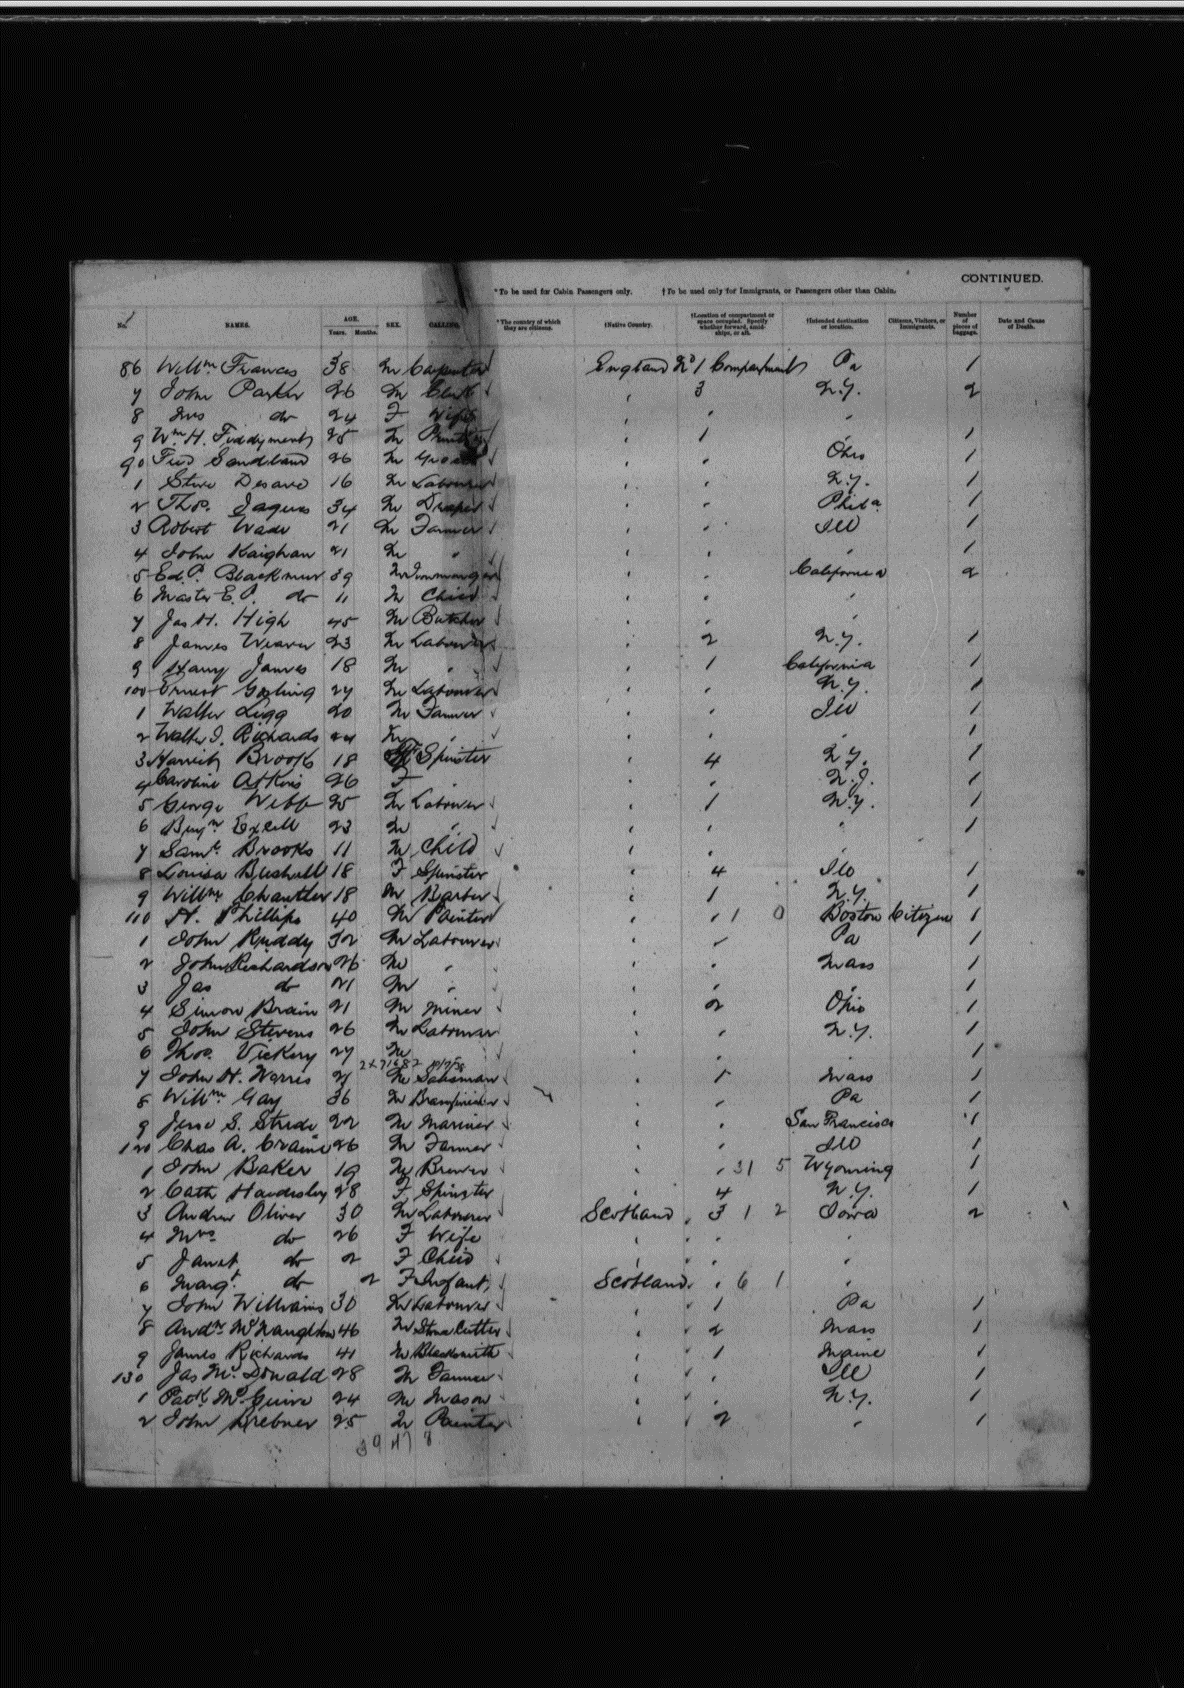 CONTINUED.
*To be used for Cabin Passengers only. †To be used only for Immigrants, or Passengers other than Cabin.
No. NAMES. AGE. Years. Months. SEX. CALLING. *The country of which they are citizens. †Native Country. †Location of compartment or space occupied. Specify whether forward, amidships, or aft. †Intended destination or location. Citizens, Visitors, or Immigrants. Number of pieces of baggage. Date and Cause of Death.
86 Willm Frances 38 M Carpenter England No 1 Compartment Pa 1
7 John Parker 26 M Clerk " 3 N.Y. 2
8 Mrs do 24 F Wife " " "
9 Wm H. Fiddyment 25 M " 1 " 1
90 Fred Sandiland 26 M Grocer " " Ohio 1
1 Steve 16 M Labourer " " N.Y. 1
2 Thos. Jaques 34 M Draper " " Phila 1
3 Robert Wade 21 M Farmer " " Ill 1
4 John Kaighan 21 M " " " " 1
5 Ed. P. Blackmur 39 M Ironmonger " " California 2
6 Master E. P. do 11 M Child " " "
7 Jas H. High 45 M Butcher " " "
8 James Weaver 23 M Labourer " 2 N.Y. 1
9 Harry James 18 M " " 1 California 1
100 Ernest Gosling 27 M Labourer " " N.Y. 1
1 Walter Legg 20 M Farmer " " Ill 1
2 Walter J. Richards 24 M " " " " 1
3 Harriet Brook 18 F Spinster " 4 N.Y. 1
4 Caroline Atkins 26 F " " " N.J. 1
5 George Webb 25 M Labourer " 1 N.Y. 1
6 Benjn Excell 23 M " " " " 1
7 Saml. Brooks 11 M Child " " "
8 Louisa Bushell 18 F Spinster " 4 Ill 1
9 Willm Chantler 18 M Barber " 1 N.Y. 1
110 H. Phillips 40 M Painter " " 1 0 Boston Citizen 1
1 John Ruddy 32 M Labourer " " Pa 1
2 John Richardson 26 M " " " Mass 1
3 Jas do 21 M " " " " 1
4 Simon Brain 21 M Miner " 2 Ohio 1
5 John Stevens 26 M Labourer " " N.Y. 1
6 Thos. Vickery 27 M " " " 1
7 John H. Norris 21 M Salesman " 1 Mass 1
8 Willm Gay 36 M Brassfinisher " " Pa 1
9 Jesse S. Stride 22 M Mariner " " San Francisco 1
120 Chas A. Craine 26 M Farmer " " Ill 1
1 John Baker 19 M Brewer " " 31 5 Wyoming 1
2 Cath 28 F Spinster " 4 N.Y. 1
3 Andrew Oliver 30 M Labourer Scotland " 3 1 2 Iowa 2
4 Mrs do 26 F Wife " " "
5 Janet do 2 F Child " " "
6 Margt. do 2 F Infant Scotland " 6 1 "
7 John Williams 30 M Labourer " 1 Pa 1
8 Andw McNaughton 46 M Stone Cutter " 2 Mass 1
9 James Richards 41 M Blacksmith " 1 Maine 1
130 Jas McDonald 28 M Farmer " " Ill 1
1 Patk McGuire 24 M Mason " " N.Y. 1
2 John Grebner 25 M Painter " 2 " 1
39 47 8